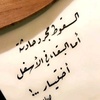 السقوط مجرد حادثة
أما البقاء في الأسفل
اختيار ..!